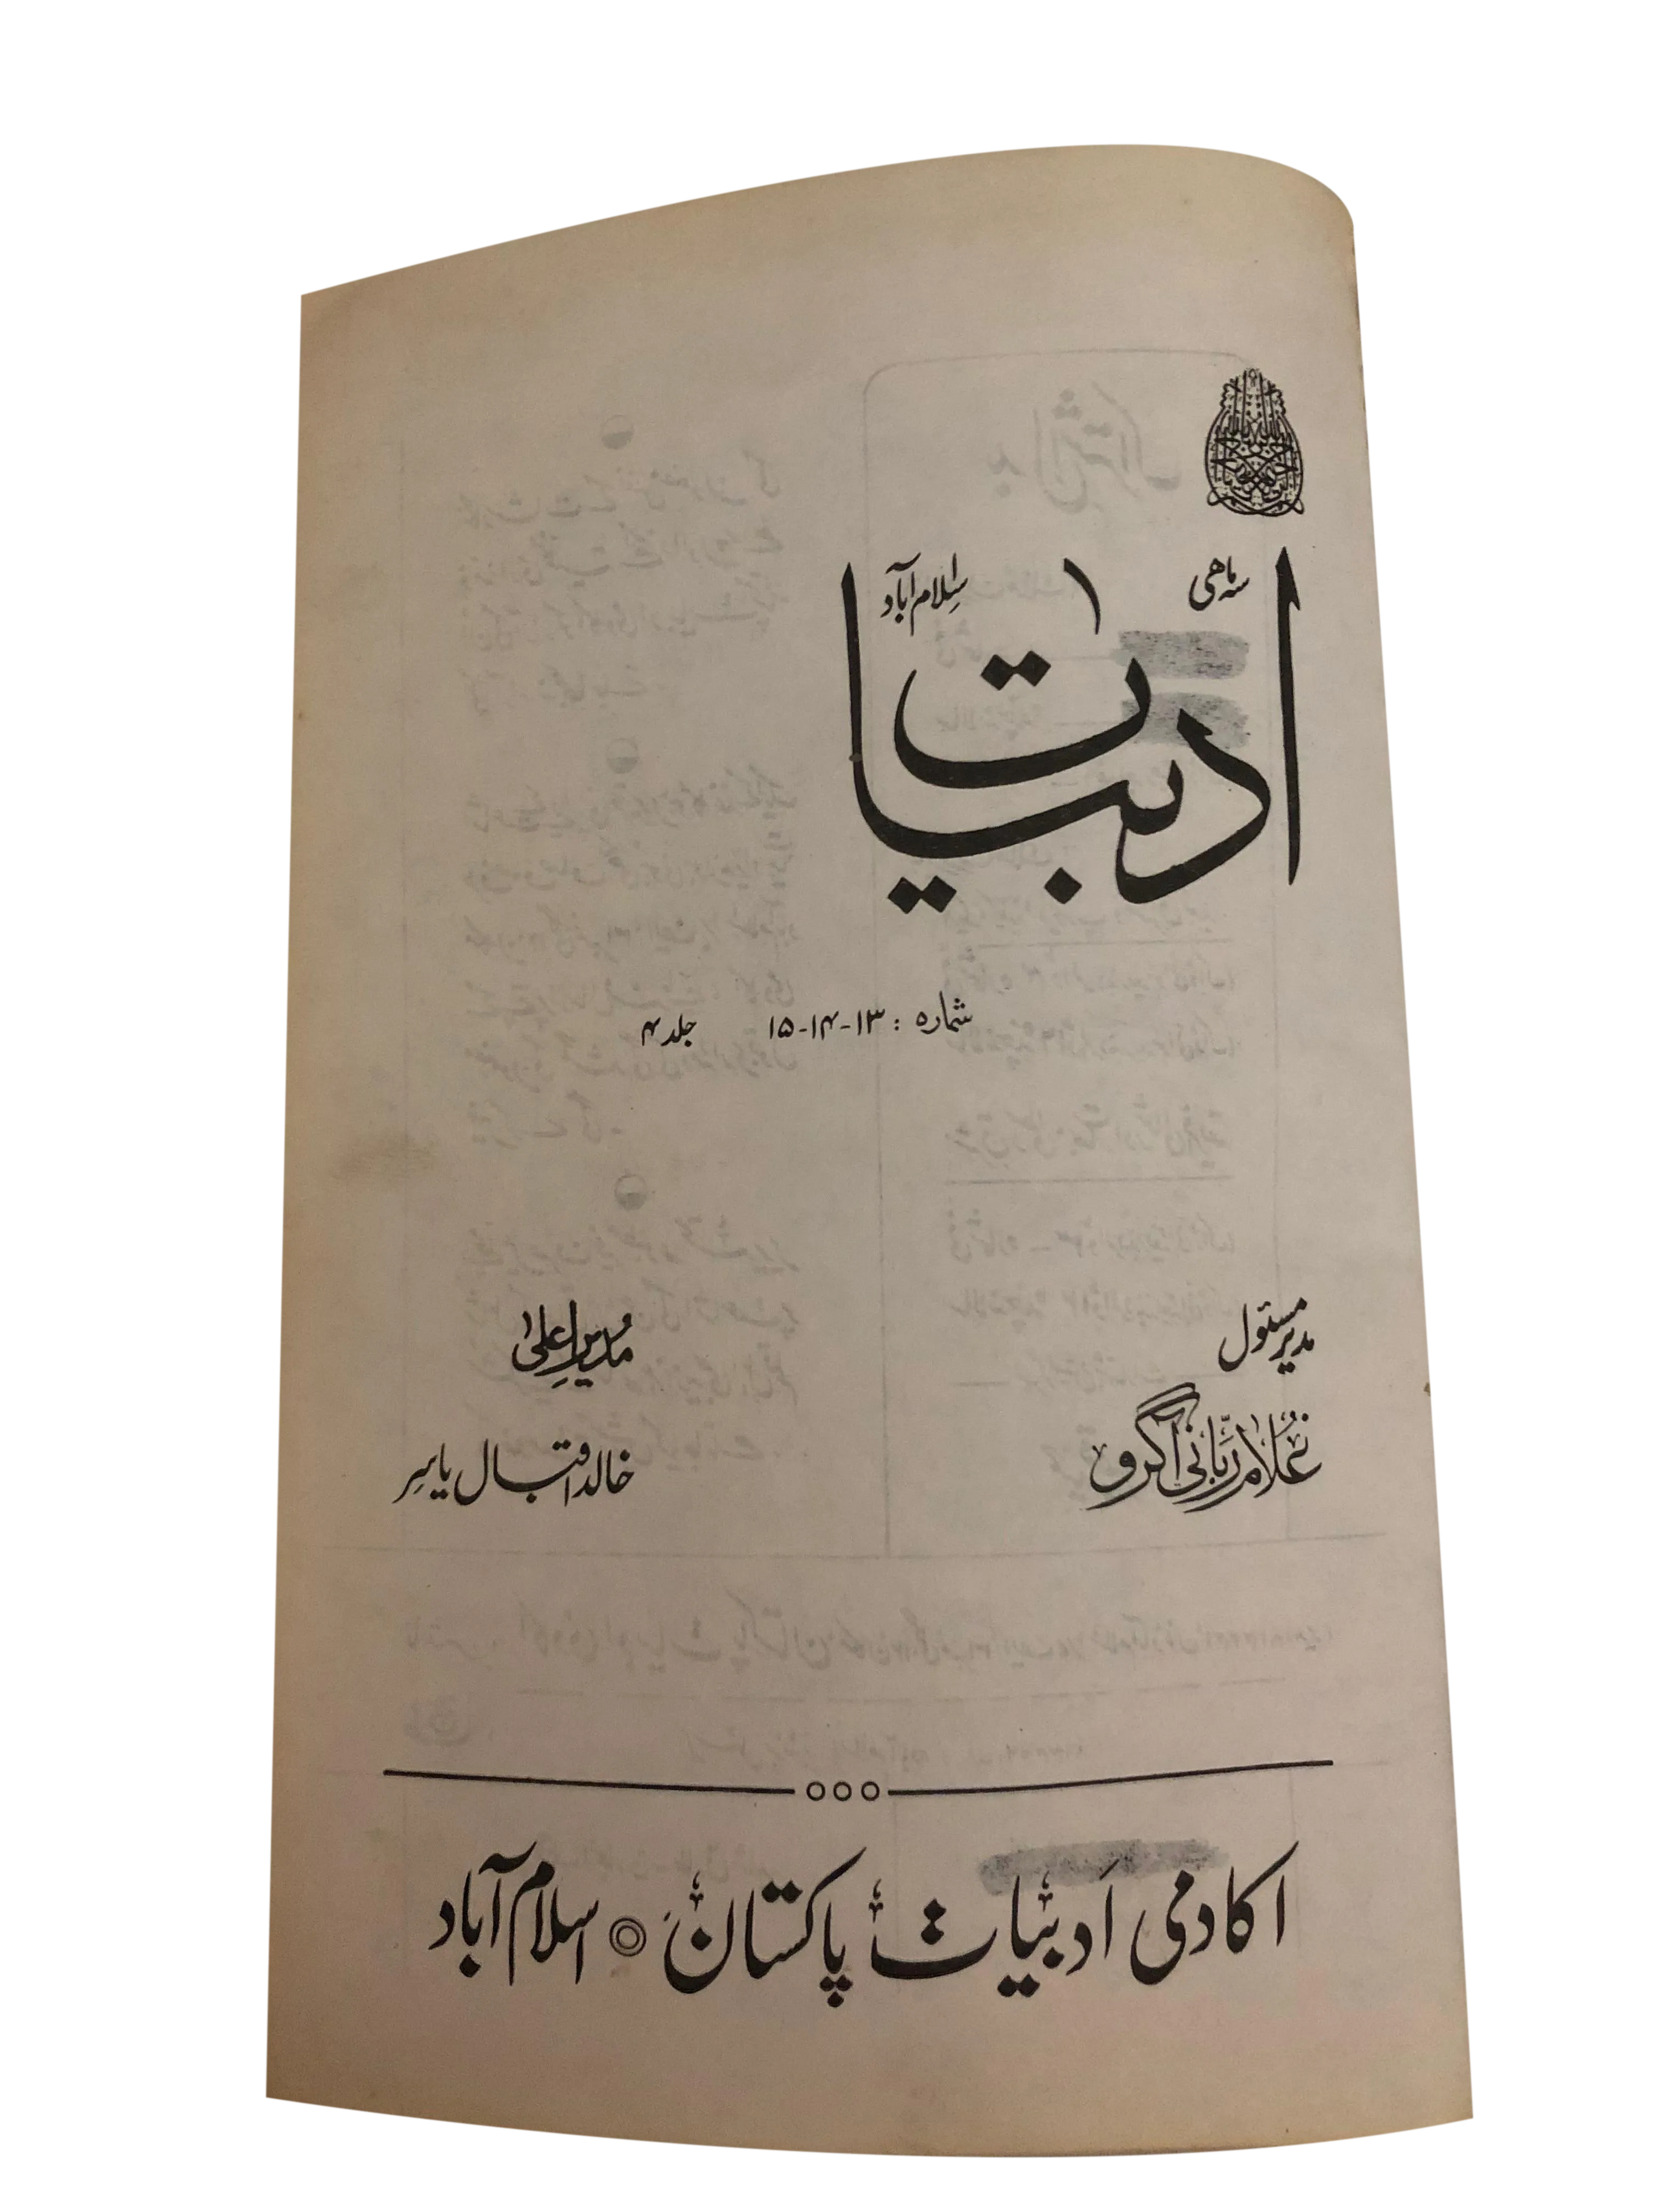 سہ ماہی
اسلام آباد
ادبیات
شمارہ : ۱۳-۱۴-۱۵ جلد ۴
مدیر مسئول
مُدیرِ اعلیٰ
غُلام ربّانی آگرو
خالد اقبال یاسِر
اکادمی اَدبیات پاکستان ◎ اسلام آباد